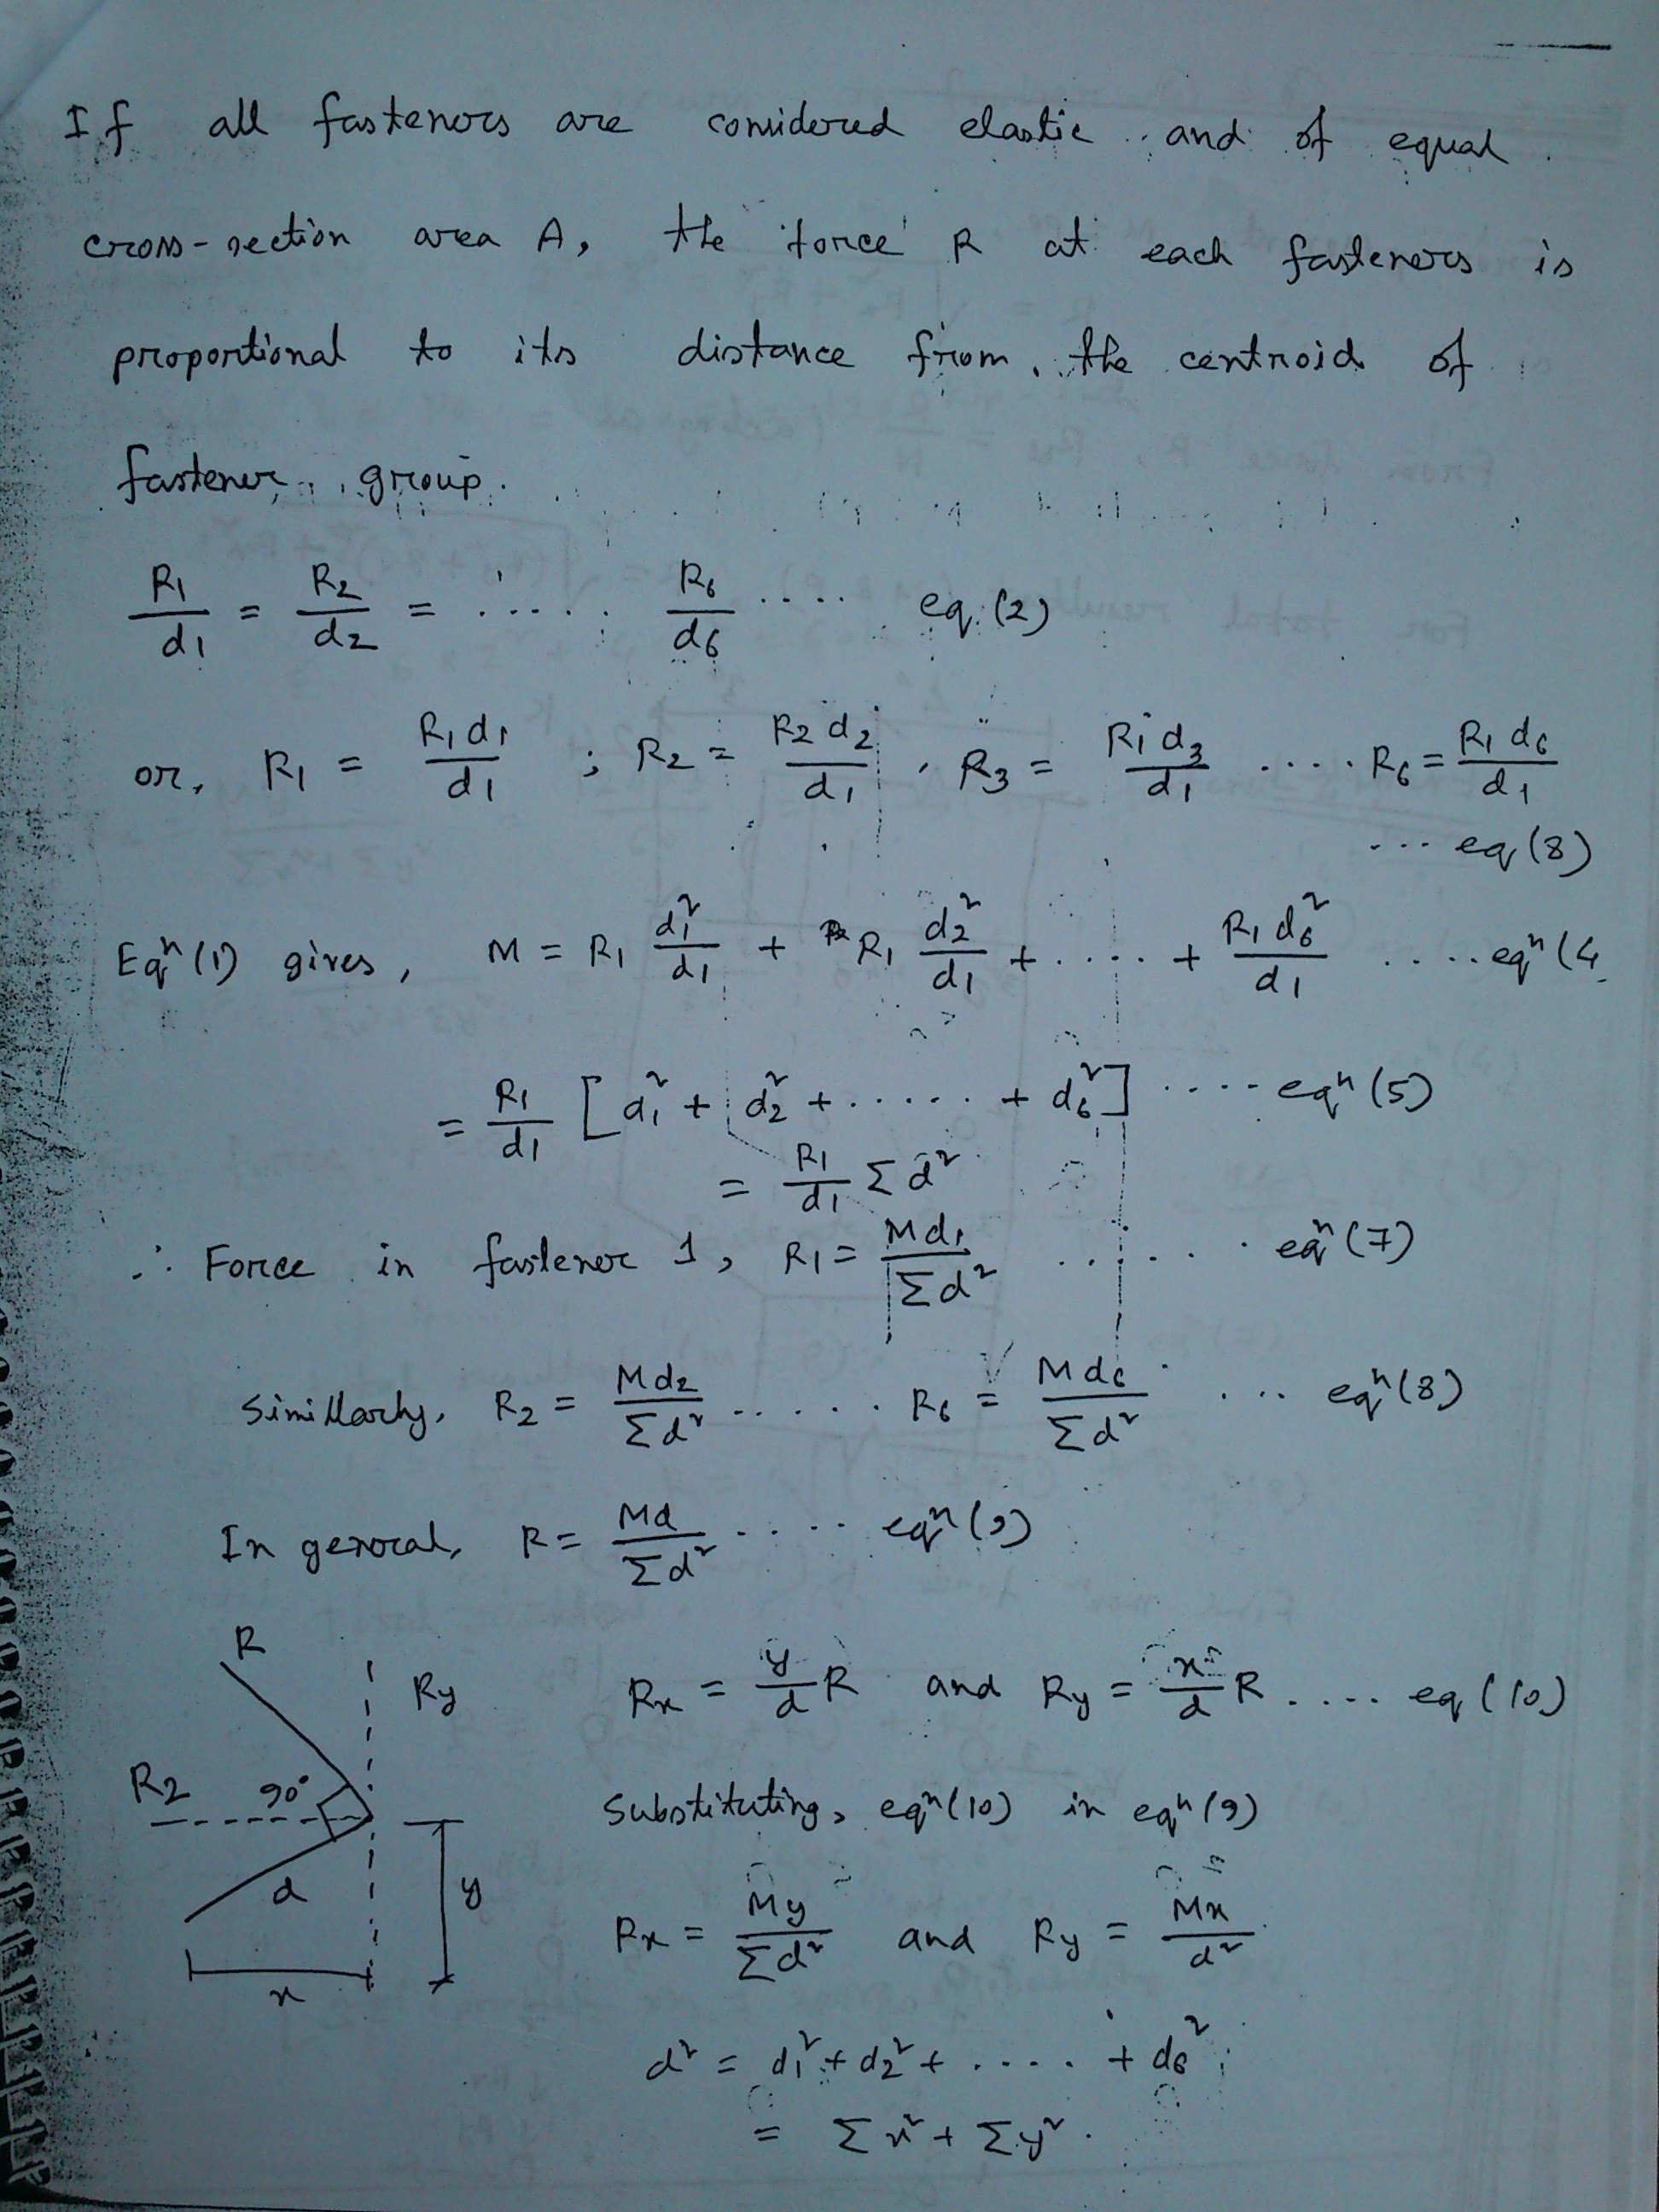 If all fasteners are considered elastic and of equal
cross-section area A, the force R at each fasteners is
proportional to its distance from the centroid of
fastener group.
R1/d1 = R2/d2 = ..... R6/d6 .... eq.(2)
or, R1 = R1 d1/d1 ; R2 = R2 d2/d1 , R3 = R1 d3/d1 .... R6 = R1 d6/d1
... eq (8)
Eqⁿ (1) gives, M = R1 d1²/d1 + R1 d2²/d1 + ..... + R1 d6²/d1 .... eqⁿ (4
= R1/d1 [d1² + d2² + ...... + d6²] .... eqⁿ (5)
= R1/d1 Σd²
∴ Force in fastener 1, R1 = Md1/Σd² ..... eqⁿ (7)
Simillarly, R2 = Md2/Σd² ..... R6 = Md6/Σd² ... eqⁿ (8)
In general, R = Md/Σd² .... eqⁿ (9)
R
Ry
Rx = y/d R and Ry = x/d R .... eq (10)
R2 90°
Substituting, eqⁿ (10) in eqⁿ (9)
d y
Rx = My/Σd² and Ry = Mx/d²
x
d² = d1² + d2² + .... + d6²
= Σx² + Σy².